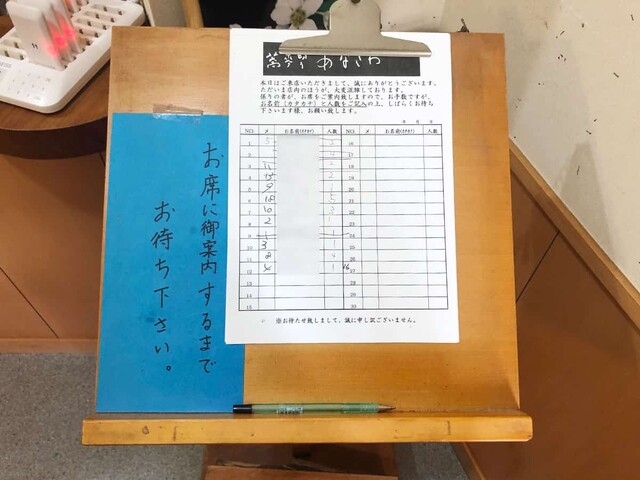 蕎麦 あなざわ
本日はご来店いただきまして、誠にありがとうございます。
ただいま店内のほうが、大変混雑しております。
係りの者が、お席をご案内致しますので、お手数ですが、
お名前（カタカナ）と人数をご記入の上、しばらくお待ち
下さいます様、お願い致します。
月 日
NO. メ お名前(カタカナ) 人数 NO. メ お名前(カタカナ) 人数
1 5 16
2 17
3 11 18
4 15 2 19
5 9 1 20
6 18 5 21
7 10 3 22
8 2 1 23
9 1 24
10 3 1 25
11 8 4 26
12 4 1 16 27
13 28
14 29
15 30
※お待たせ致しまして、誠に申し訳ございません。
お席に御案内するまで
お待ち下さい。